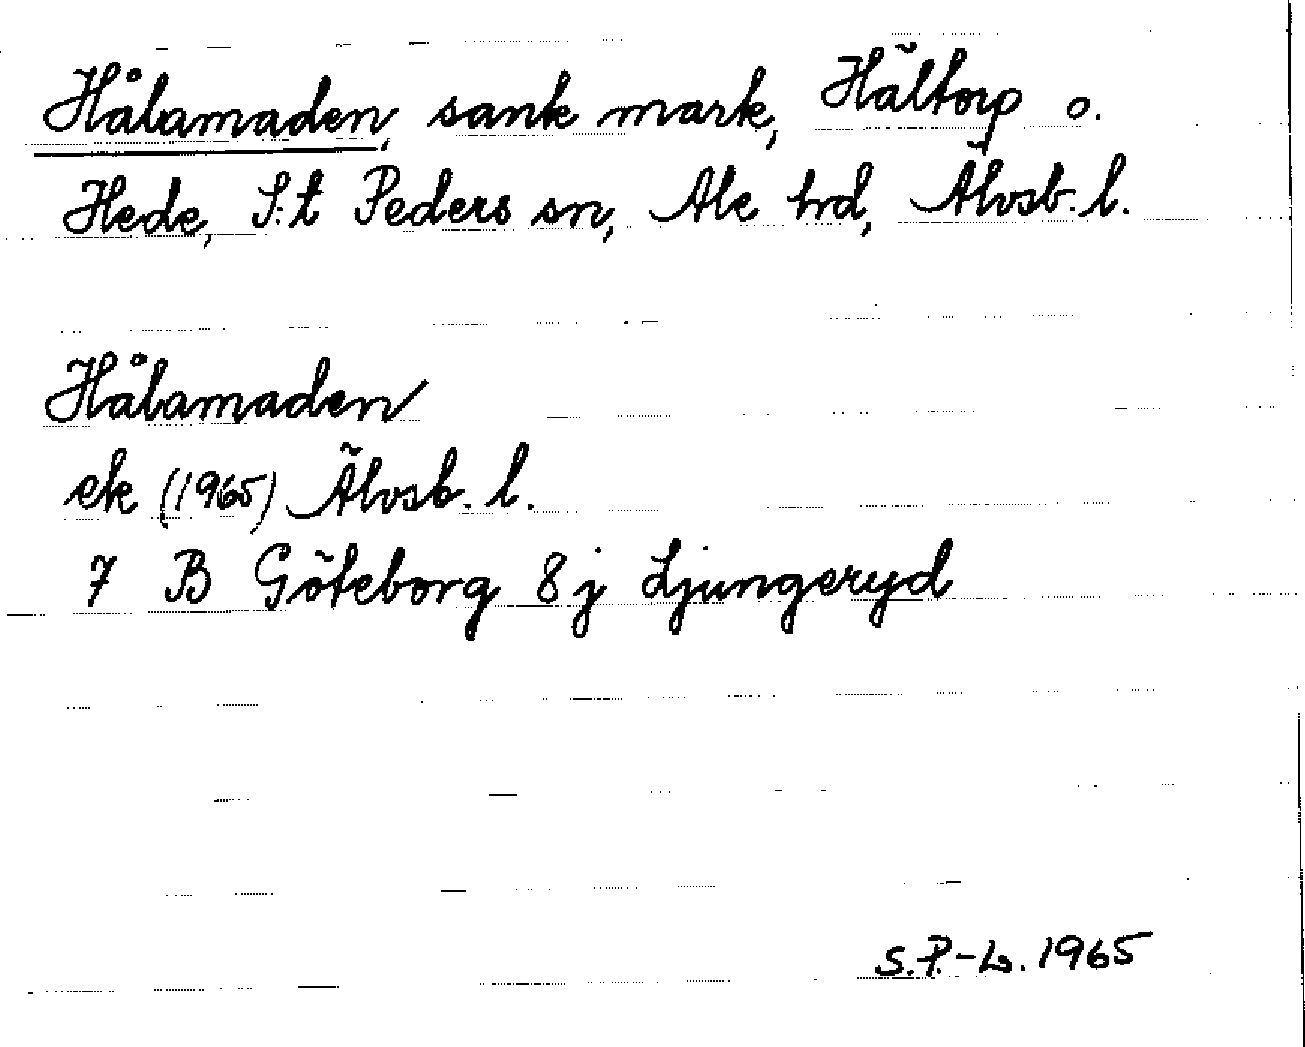 Hålamaden, sank mark, Hältorp o.
Hede, S:t Peders sn, Ale hrd, Älvsb. l.
Hålamaden
ek (1965) Älvsb. l.
7 B Göteborg 8 j Ljungeryd
S.P.-L. 1965